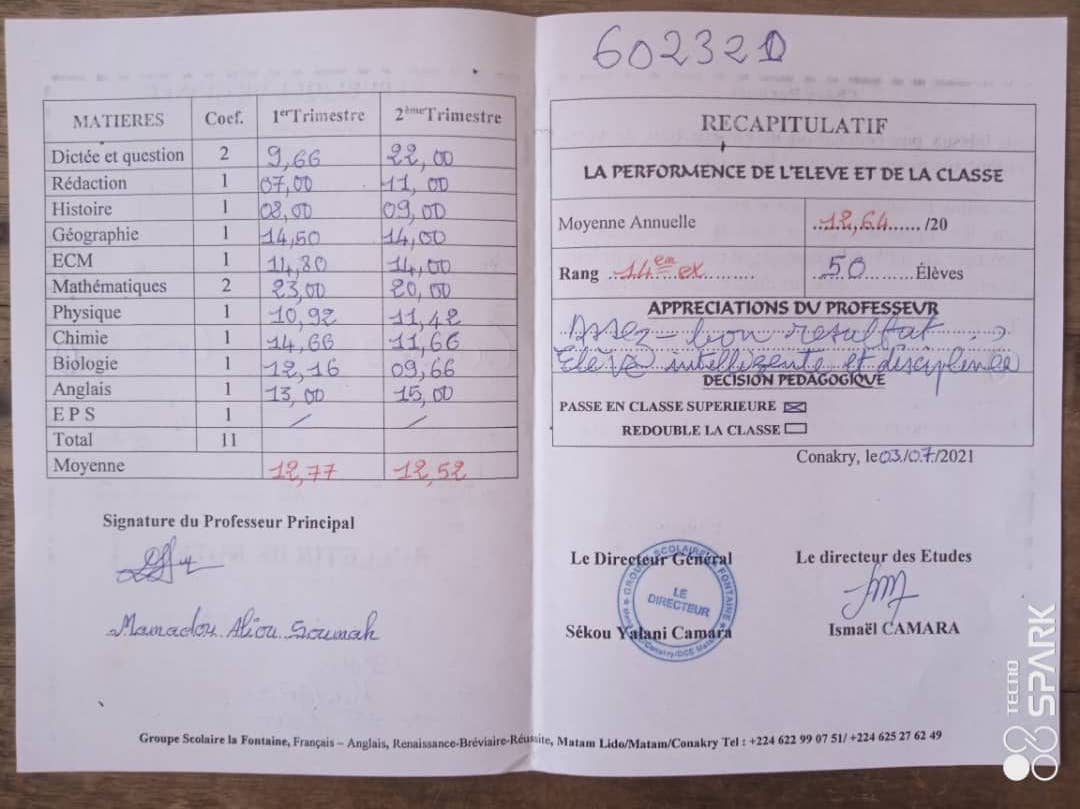 MATIERES Coef. 1erTrimestre 2èmeTrimestre
Dictée et question 2 9,66 22,00
Rédaction 1 07,00 11,00
Histoire 1 08,00 09,00
Géographie 1 14,50 14,00
ECM 1 14,80 14,00
Mathématiques 2 23,00 20,00
Physique 1 10,92 11,42
Chimie 1 14,66 11,66
Biologie 1 12,16 09,66
Anglais 1 13,00 15,00
E P S 1 / /
Total 11
Moyenne 12,77 12,52
Signature du Professeur Principal
Mamadou Aliou Soumah
60232D
RECAPITULATIF
LA PERFORMENCE DE L'ELEVE ET DE LA CLASSE
Moyenne Annuelle 12,64 /20
Rang 14em ex 50 Élèves
APPRECIATIONS DU PROFESSEUR
Assez-bon resultat
Elève intelligente et disciplinée
DECISION PEDAGOGIQUE
PASSE EN CLASSE SUPERIEURE
REDOUBLE LA CLASSE
Conakry, le 03/07/2021
Le Directeur Général Le directeur des Etudes
LE
DIRECTEUR
Sékou Yalani Camara Ismaël CAMARA
Groupe Scolaire la Fontaine, Français – Anglais, Renaissance-Bréviaire-Réussite, Matam Lido/Matam/Conakry Tel : +224 622 99 07 51/ +224 625 27 62 49
TECNO
SPARK